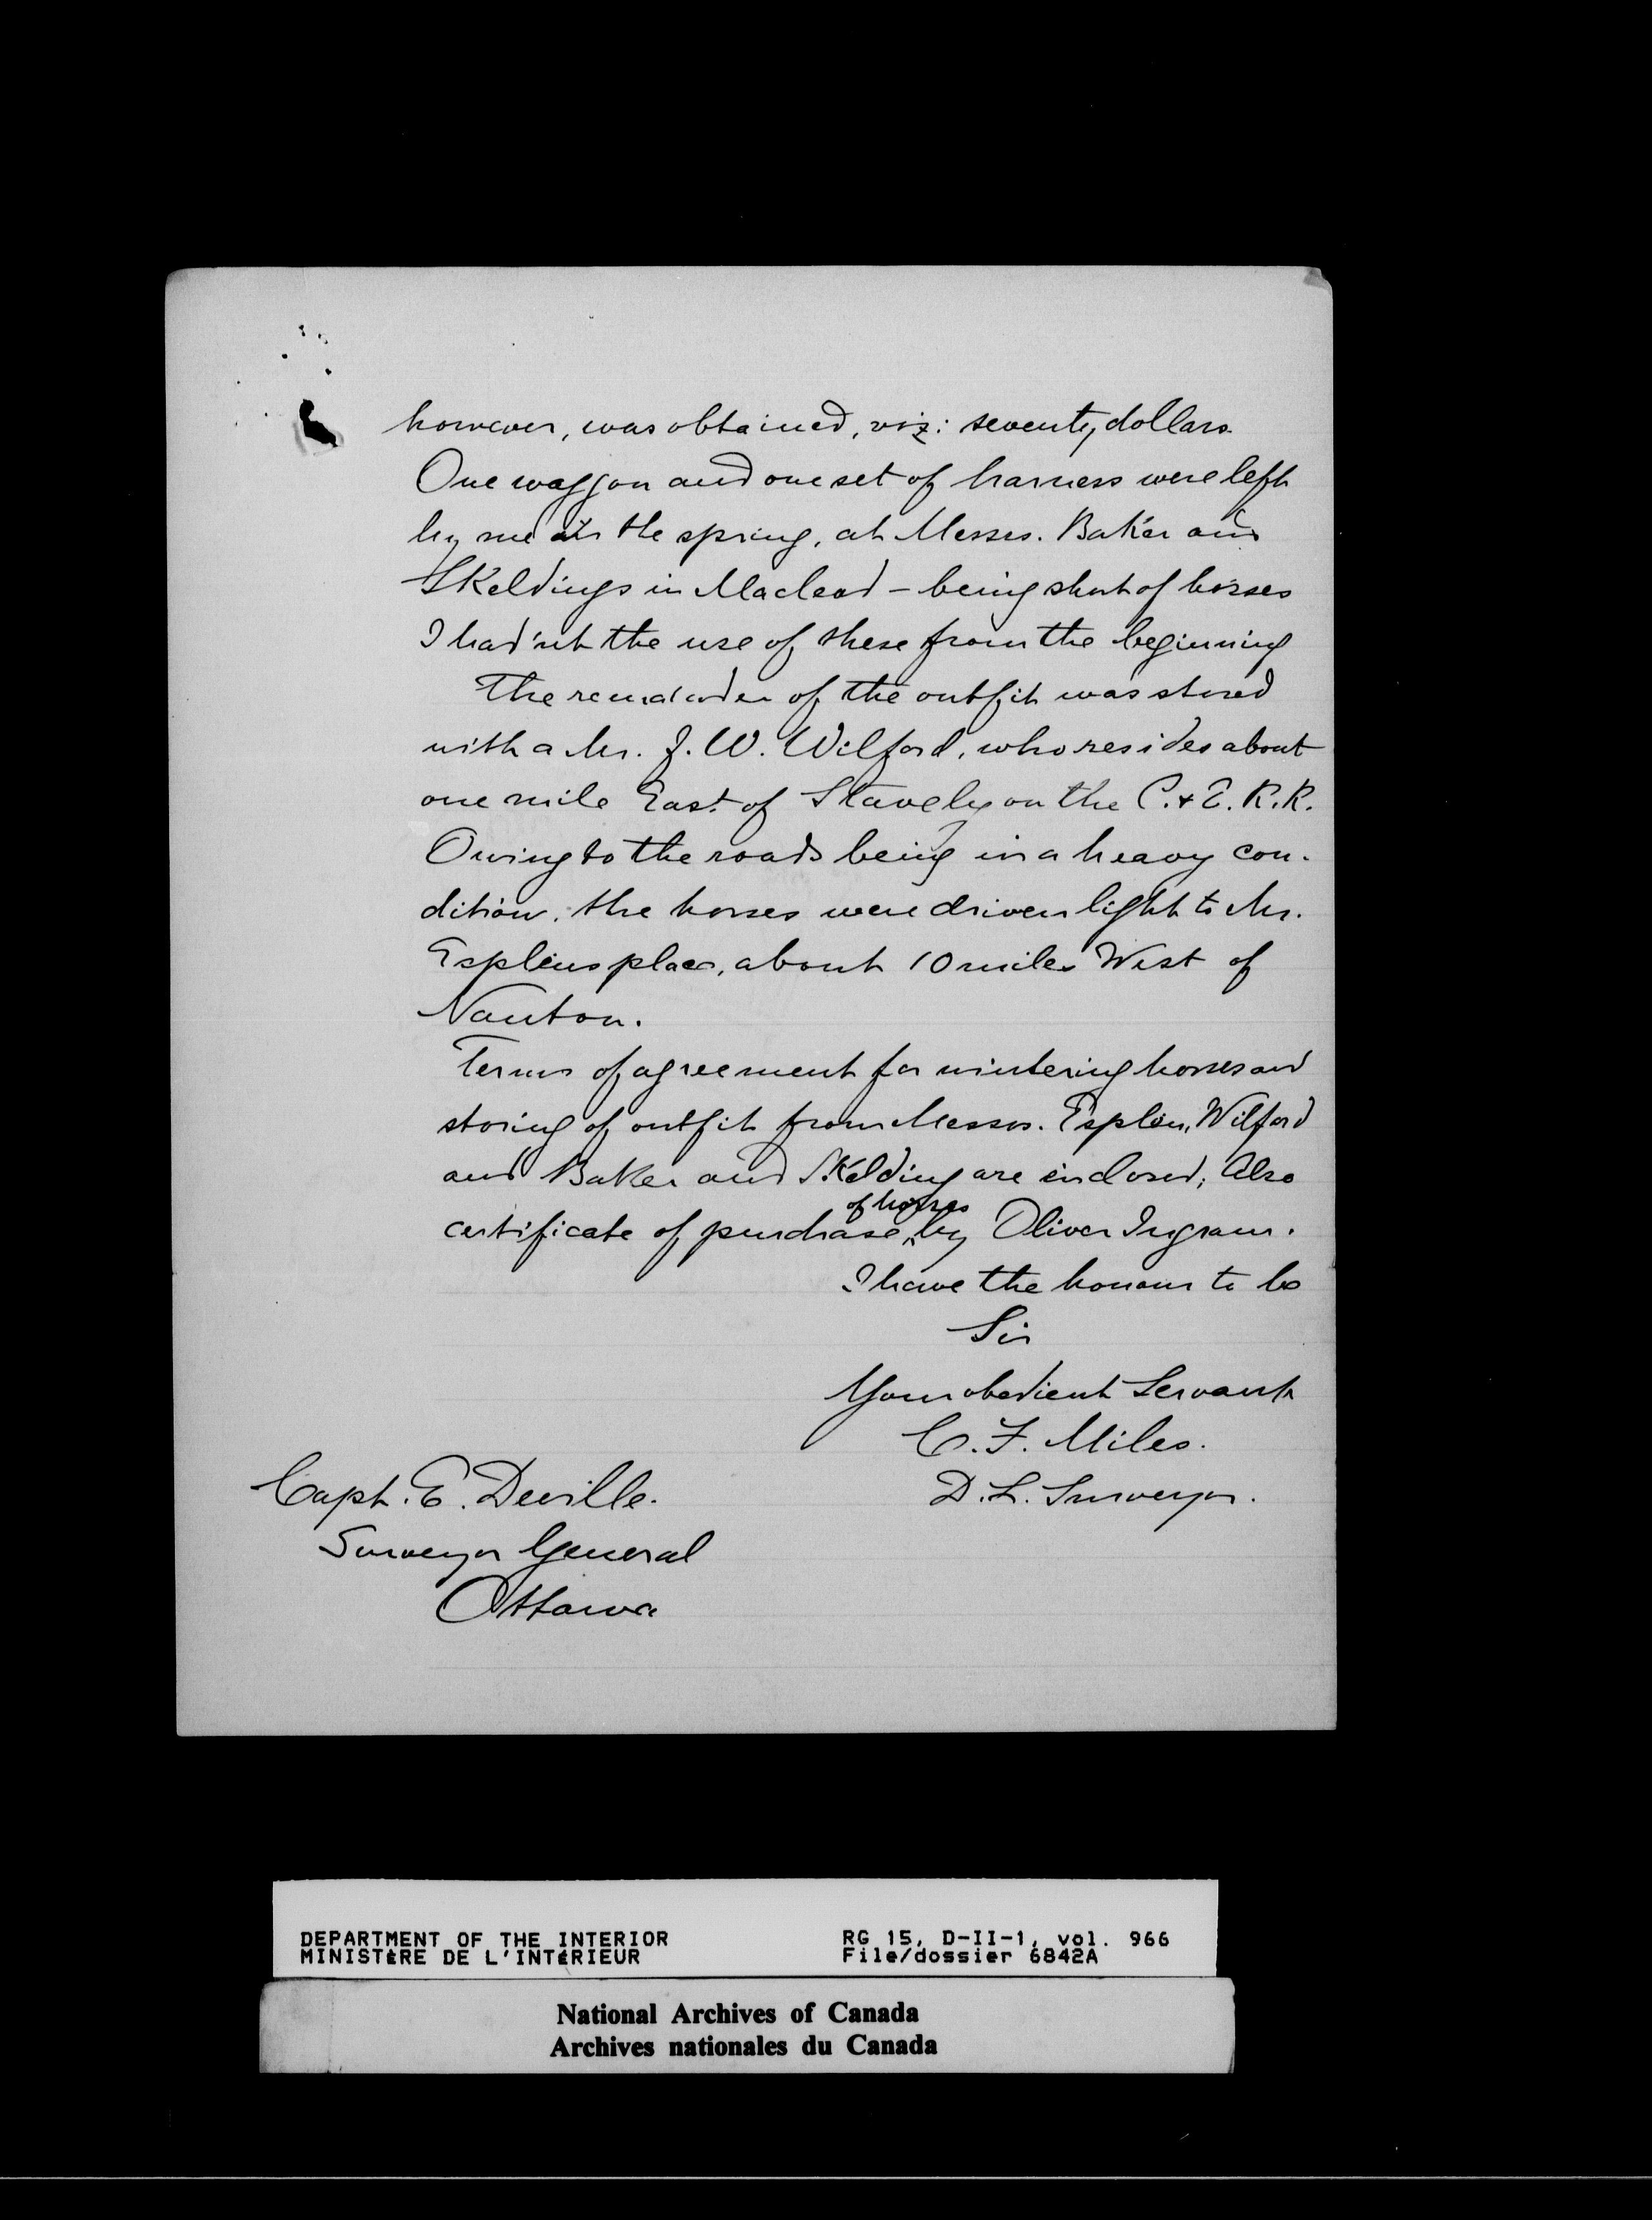 however, was obtained, viz: seventy dollars.
One waggon and one set of harness were left
by me in the spring, at Messrs. Baker and
Skeldings in Macleod – being short of horses
I had'nt the use of these from the beginning
The remainder of the outfit was stored
with a Mr. J. W. Wilford, who resides about
one mile East of Stavely on the C. & E. R. R.
Owing to the roads being in a heavy con-
dition, the horses were driven light to Mr.
Esplins place, about 10 miles West of
Nanton.
Terms of agreement for wintering horses and
storing of outfit from Messrs. Esplin, Wilford
and Baker and Skelding are inclosed; Also
of horses
certificate of purchase ^ by Oliver Ingram.
I have the honour to be
Sir
Your obedient Servant
C. F. Miles.
D. L. Surveyor.
Capt. E. Deville.
Surveyor General
Ottawa
DEPARTMENT OF THE INTERIOR
MINISTÈRE DE L'INTÉRIEUR
RG 15, D-II-1, vol. 966
File/dossier 6842A
National Archives of Canada
Archives nationales du Canada